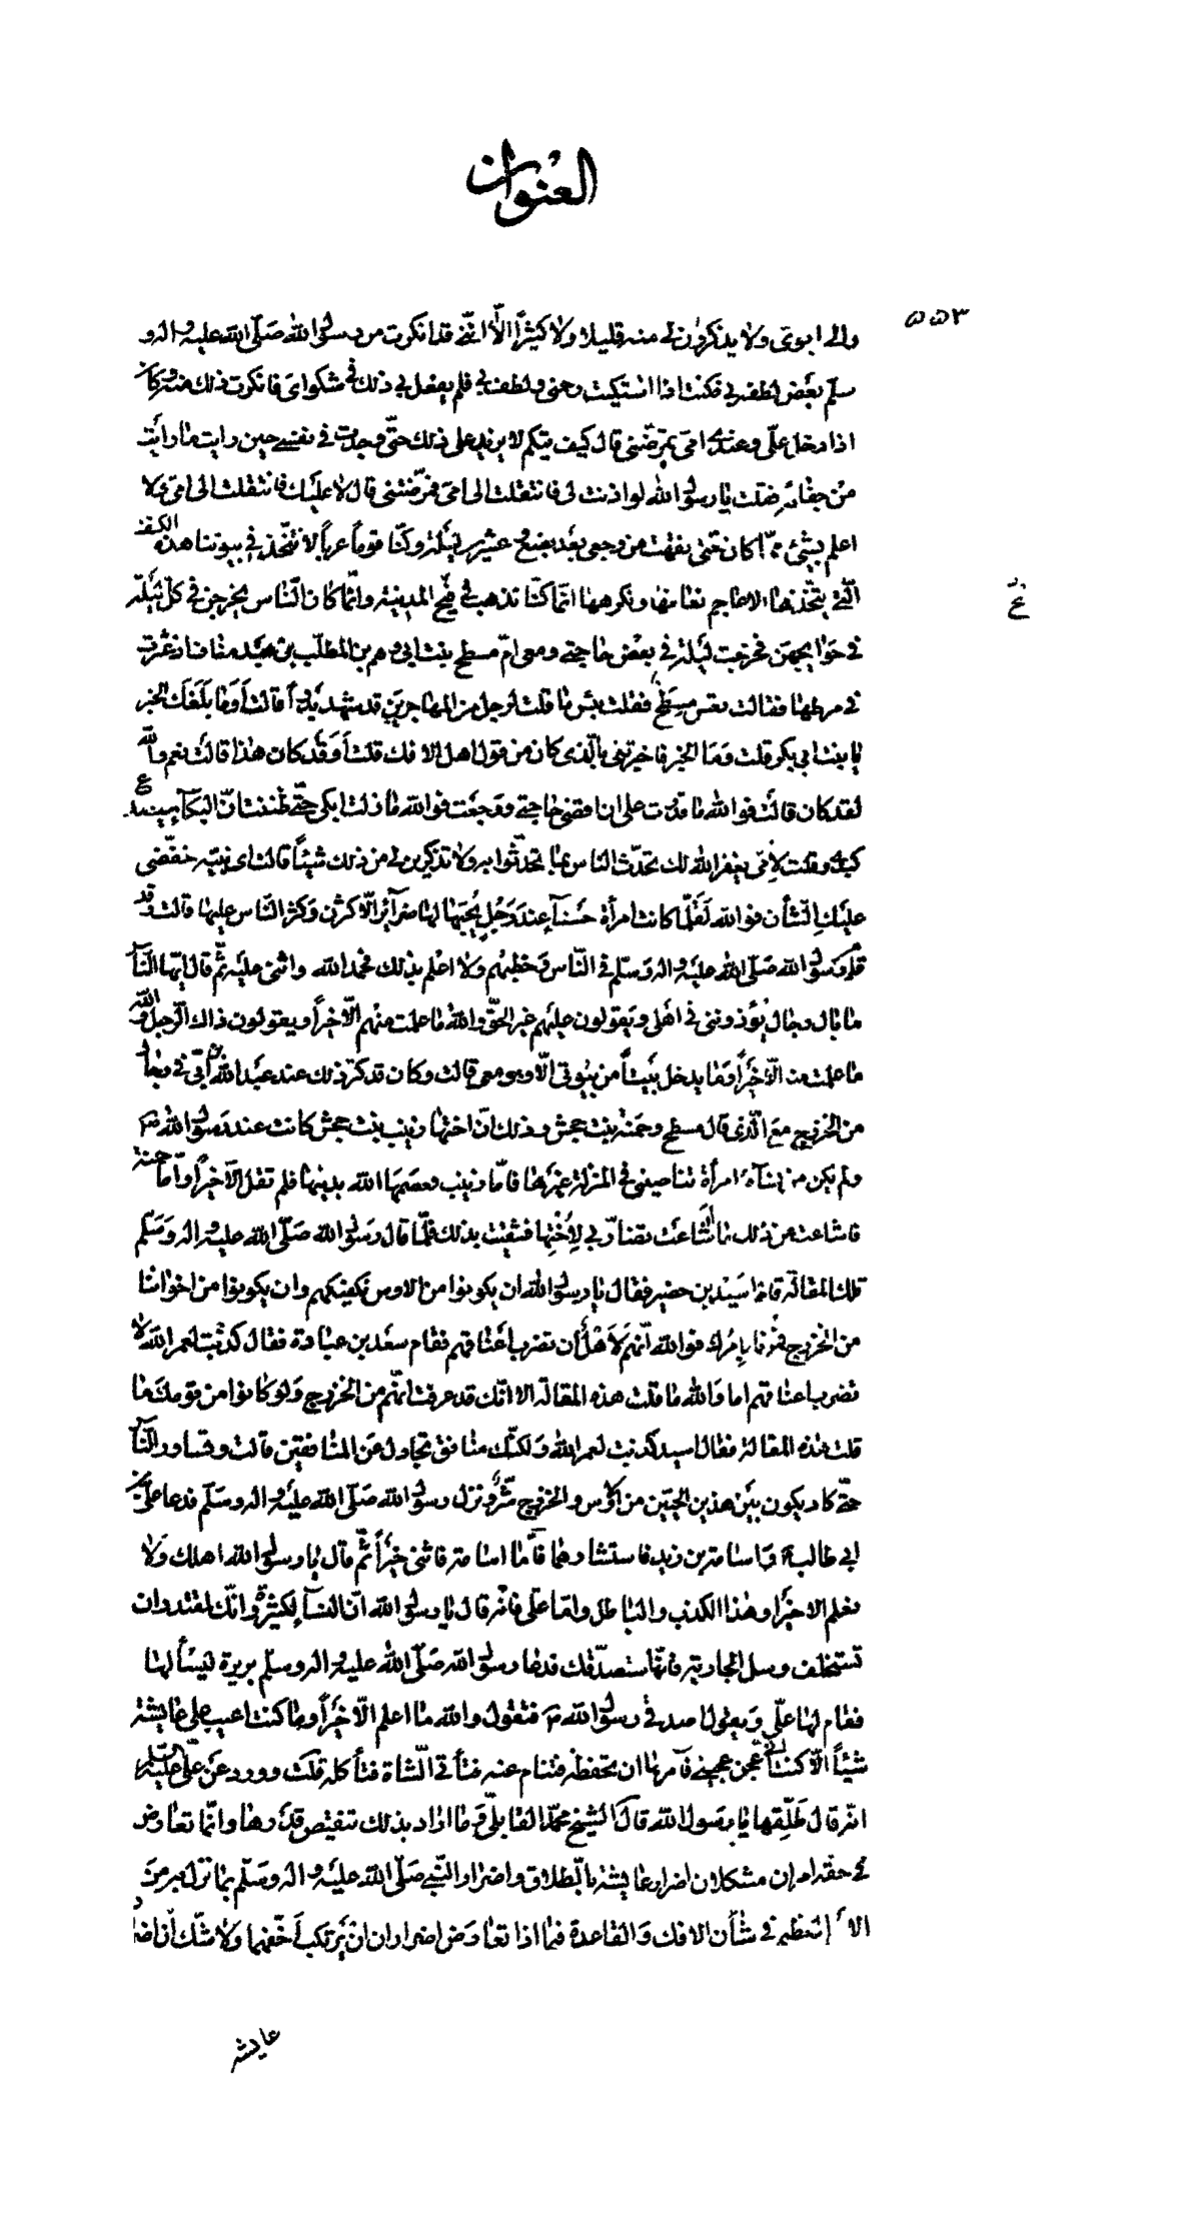 العنوان
٥٥٣
والى ابوىّ ولا يذكرون لى منه قليلا ولا كثيرًا الّا انّى قد انكرت من رسول الله صَلّى الله عليه واله و
سلّم بعض لطفه بى فكنت اذا اشتكيت رحمنى ولطف بى فلم يفعل بى ذلك فى شكواى فانكرت ذلك منه وكان
اذا دخل علىّ وعندى امى تمرّضنى قال كيف تيكم لا يزيد على ذلك حتّى وجدت فى نفسى حين رايت ما رايت
من جفائه فقلت يا رسول الله لو اذنت لى فانتقلت الى امى فمرّضتنى قال لا عليك فانتقلت الى امى ولا
اعلم بشئ ممّا كان حتّى نقهت من وجعى بعد بضع وعشرين ليلة وكنّا قوماً عرباً لا نتّخذ فى بيوتنا هذه الكنف
الّتى يتّخذها الاعاجم نعافها ونكرهها انّما كنّا نذهب فى فيح المدينة وانّما كان النّاس يخرجن فى كلّ ليلة
فى حوايجهن فخرجت ليلة فى بعض حاجتى ومعى امّ مسطح بنت ابى رهم بن المطلب بن عبد مناف اذ عثرت
فى مرطها فقالت تعس مسطح فقلت بئس ما قلت لرجل من المهاجرين قد شهد بدرًا قالت أوما بلغك الخبر
يا بنت ابى بكر قلت وما الخبر فاخبرتنى بالّذى كان من قول اهل الافك قلت أوقد كان هذا قالت نعم والله
لقد كان قالت فوالله ما قدرت على ان اقضى حاجتى ورجعت فوالله ما زلت ابكى حتّى ظننت انّ البكاء سيصدع
كبدى وقلت لأمّى يغفر الله لك تحدّث الناس بما تحدّثوا به ولا تذكرين لى من ذلك شيئاً قالت اى بنيّه خفّضى
عليكِ الشأن فوالله لقلّما كانت امرأة حسناء عند رجل يحبّها لها ضرآئر الّا كثرن وكثر النّاس عليها قالت وقد
قام رسول الله صَلّى الله عليه واله وسلّم فى النّاس فخطبهم ولا اعلم بذلك فحمد الله واثنى عليه ثم قال ايّها النّاس
ما بال رجال يؤذوننى فى اهلى ويقولون عليهم غير الحقّ والله ما علمت منهم الّا خيراً ويقولون ذاك لرجل والله
ما علمت منه الّا خيراً وما يدخل بيتاً من بيوتى الّا وهو معى قالت وكان قد كبّر ذلك عند عبد الله بن ابىّ فى رجال
من الخزرج مع الّذى قال مسطح وحمنة بنت جحش وذلك انّ اختها زينب بنت جحش كانت عند رسول الله ص
ولم يكن من نسآئه امرأة تناصينى فى المنزلة غيرها فامّا زينب فعصمها الله بدينها فلم تقل الّا خيراً وامّا حمنة
فاشاعت من ذلك ما اشاعت تضارّنى لأختها فشقيت بذلك فلمّا قال رسول الله صَلّى الله عليه واله وسَلّم
تلك المقالة قام اسيد بن حضير فقال يا رسول الله ان يكونوا من الاوس نكفيكهم وان يكونوا من اخواننا
من الخزرج فمرنا بامرك فوالله انّهم لأهل أن تضرب أعناقهم فقام سعد بن عبادة فقال كذبت لعمر الله لا
تضرب اعناقهم اما والله ما قلت هذه المقالة الا انّك قد عرفت انّهم من الخزرج ولو كانوا من قومك ما
قلت هذه المقالة فقال اسيد كذبت لعمر الله ولكنّك منافق تجادل عن المنافقين قالت وتساور النّاس
حتّى كاد يكون بين هذين الحيّين من الاوس والخزرج شرّ ونزل رسول الله صَلّى الله عليه واله وسَلّم فدعا علىّ بن
ابى طالب واسامة بن زيد فاستشارهما فأمّا اسامة فاثنى خيراً ثم قال يا رسول الله اهلك ولا
نعلم الا خيرا وهذا الكذب والباطل وامّا علىّ فانّه قال يا رسول الله انّ النسآء لكثيرة وانّك لمقتدر ان
تستخلف وسل الجارية فانّها ستصدّقك فدعا رسول الله صَلّى الله عليه واله وسلّم بريرة ليسألها
فقام لها علىّ ويقول اصدقى رسول الله ص فتقول والله ما اعلم الّا خيراً وما كنت اعيب على عايشة
شيئاً الّا كنت اعجن عجينى فآمرها ان تحفظه فتنام عنه فتأتى الشاة فتأكله قلت وورد عن علىّ عليه السّلام
انّه قال طلّقها يا رسول الله قال الشيخ محمّد وما اراد بذلك تنقيص قدرها وانّما تعارض
فى حقه امران مشكلان اضرار عايشة بالطلاق واضرار النّبى صَلّى الله عليه واله وسَلّم بما نزل به من
العظيم فى شأن الافك والقاعدة فيما اذا تعارض اضراران ان يرتكب اخفّهما ولا شكّ ان اضرار
عايشه